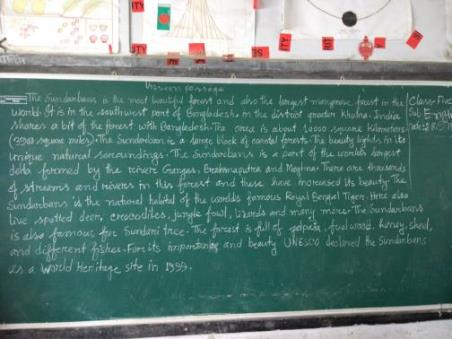 Unseen passage
The Sundarbans is the most beautiful forest and also the largest mangrove forest in the
world. It is in the southwest part of Bangladesh in the district greater Khulna. India
shares a bit of the forest with Bangladesh. The area is about 10000 square kilometers
(3900 square miles). The Sundarban is a large block of coastal forests. The beauty lights in its
unique natural surroundings. The Sundarbans is a part of the world's largest
delta formed by the rivers Ganges, Brahmaputra and Meghna. There are thousands
of streams and rivers in this forest and these have increased its beauty. The
Sundarbans is the natural habitat of the worlds famous Royal Bengal Tiger. Here also
live spotted deer, crocodiles, jungle fowl, lizards and many more. The Sundarbans
is also famous for Sundari tree. The forest is full of golpata, fuel wood, honey, shed,
and different fishes. For its importance and beauty UNESCO declared the Sundarbans
as a World Heritage site in 1999.
Class: Five
Sub: English
ITY
SE
ITY